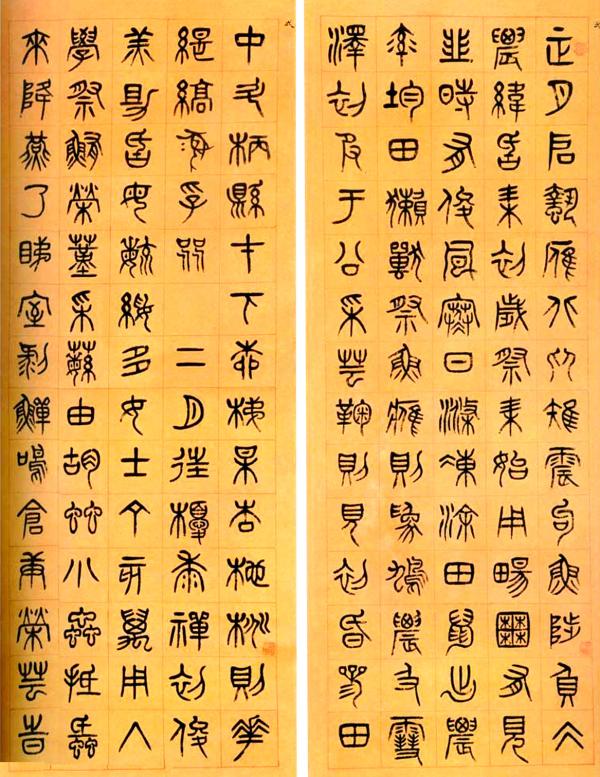 正月启蟄雁北鄉雉震呴魚陟負冰
農緯厥耒初歲祭耒始用暢囿有見
韭時有俊風寒日滌凍涂田鼠出農
率均田獺獸祭魚鷹則為鳩農及雪
澤初服于公采芸鞠則見初昏參田
中斗柄縣才下柳梯某杏杝桃則華
緹縞孚粥
二月往耰黍禪初俊
羔助厥母粥綏多女士丁亥萬用入
學祭鮪榮菫采蘩由胡䖵小蟲抵蚳
來降燕乃睇室剝鱓鳴倉庚榮芸旹